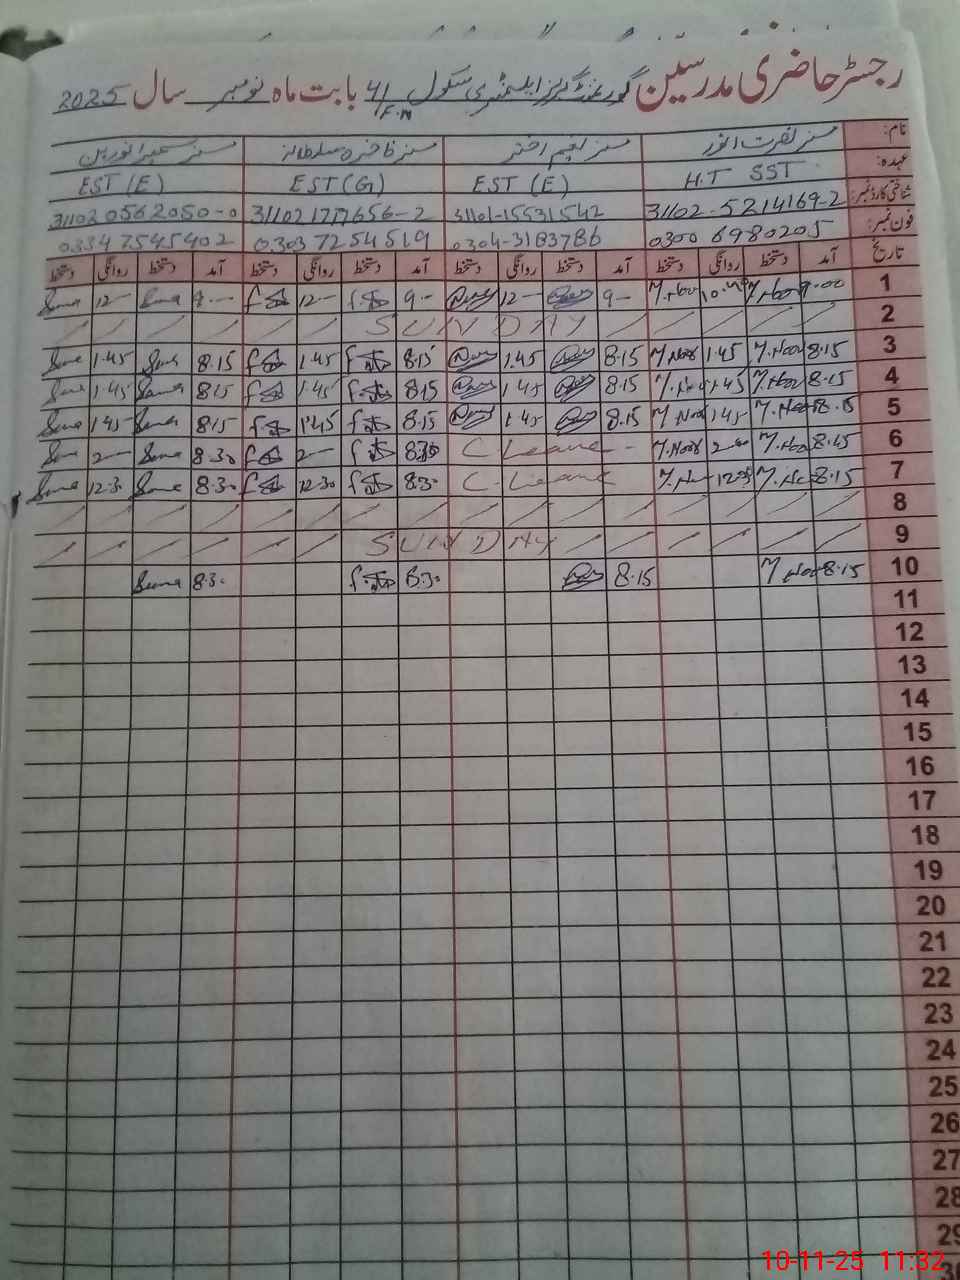 رجسٹر حاضری مدرسین گورنمنٹ گرلز ایلیمنٹری سکول 41/F.M بابت ماہ نومبر سال 2025
نام: مسز نصرت انور مسز نعیم اختر مسز فاخرہ سلطانہ مسز سمیرا نورین
عہدہ: H.T SST EST (E) EST (G) EST (E)
شناختی کارڈ نمبر: 31102-5214169-2 31101-15531542 311021717656-2 311020562050-0
فون نمبر: 0300 6980205 0304-3183786 0303 7254519 0334 7545402
تاریخ آمد دستخط روانگی دستخط آمد دستخط روانگی دستخط آمد دستخط روانگی دستخط آمد دستخط روانگی دستخط
1 9.00 9- 12- 9- 12- 9- 12-
2 SUNDAY
3 8.15 1.45 8.15 1.45 8.15 1.45 8.15 1.45
4 8.15 1.45 8.15 1.45 8.15 1.45 8.15 1.45
5 8.15 1.45 8.15 1.45 8.15 1.45 8.15 1.45
6 8.15 C Leave 8.30 2- 8.30 2-
7 8.15 C. Leave 8.30 12.30 8.30 12.30
8
9 SUNDAY
10 8.15 8.15 8.30 8.30
11
12
13
14
15
16
17
18
19
20
21
22
23
24
25
26
27
28
29
30
10-11-25 11:32